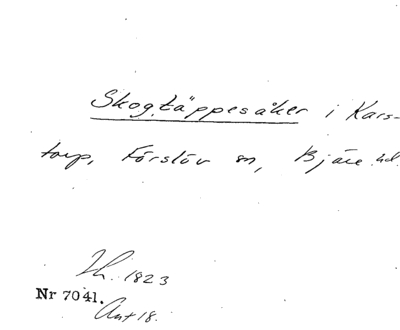 Skogtäppesåker i Kars-
torp, Förslöv sn, Bjäre hd.
Lh. 1823
Nr 7041.
Ant 18.